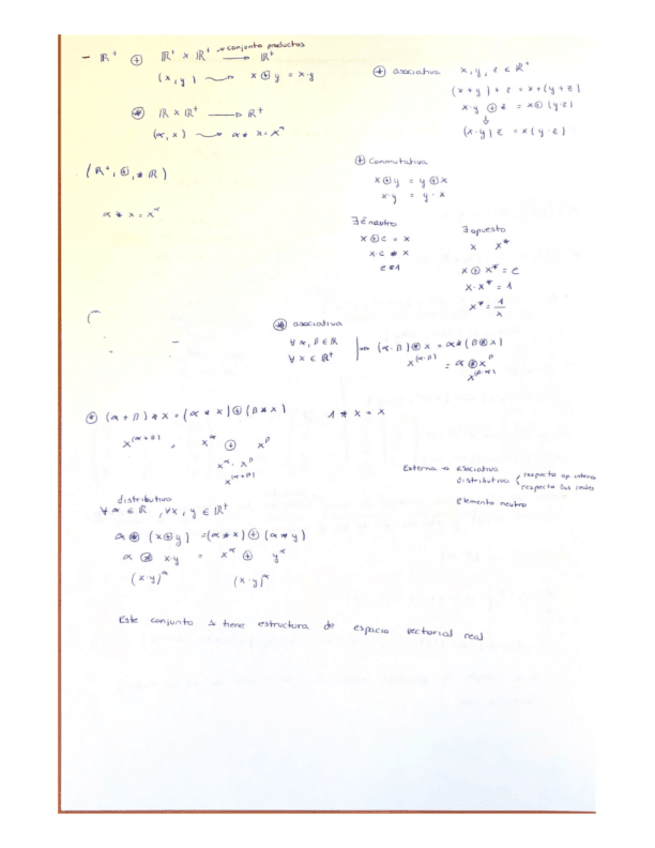 - ℝ⁺ ⊕ ℝ⁺ × ℝ⁺ → ℝ⁺ → conjunto productos
(x, y) ⟿ x ⊕ y = x·y
⊛ ℝ × ℝ⁺ → ℝ⁺
(α, x) ⟿ α * x = x^α
(ℝ⁺, ⊕, * ℝ)
α * x = x^α
⊕ asociativa x, y, z ∈ ℝ⁺
(x + y) + z = x + (y + z)
x·y ⊕ z = x ⊕ (y·z)
↓
(x·y) z = x (y·z)
⊕ Conmutativa
x ⊕ y = y ⊕ x
x·y = y·x
∃ é neutro
x ⊕ e = x
x·e = x
e = 1
∃ opuesto
x x*
x ⊕ x* = e
x·x* = 1
x* = 1/x
⊛ asociativa
∀ α, β ∈ ℝ
∀ x ∈ ℝ⁺
(α·β) ⊛ x = α * (β ⊛ x)
x^(α·β) = α ⊛ x^β
x^(β·α)
⊛ (α + β) * x = (α * x) ⊕ (β * x) 1 * x = x
x^(α+β) = x^α ⊕ x^β
x^α · x^β
x^(α+β)
Externa → asociativa
distributiva { respecto op interna
respecto
Elemento neutro
distributiva
∀ α ∈ ℝ, ∀ x, y ∈ ℝ⁺
α ⊛ (x ⊕ y) = (α * x) ⊕ (α * y)
α ⊛ x·y = x^α ⊕ y^α
(x·y)^α (x·y)^α
Este conjunto tiene estructura de espacio vectorial real